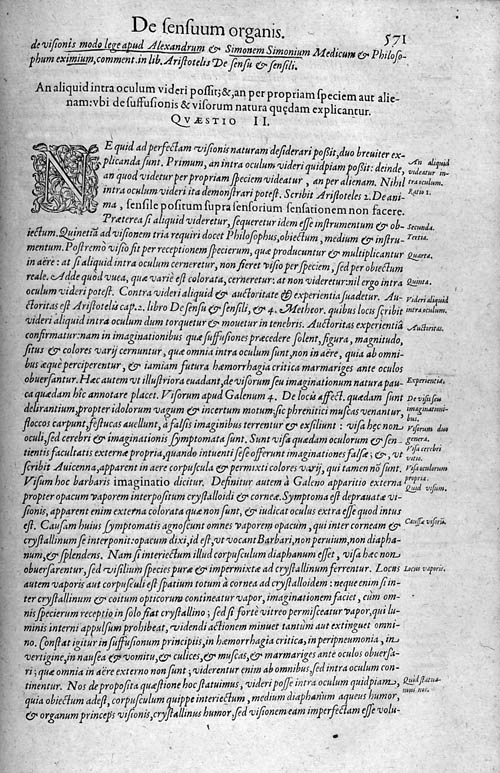 De sensuum organis.
571
de visionis modo lege apud Alexandrum & Simonem Simonium Medicum & Philoso-
phum eximium, comment. in lib. Aristotelis De sensu & sensili.
An aliquid intra oculum videri possit; &, an per propriam speciem aut alie-
nam: vbi de suffusionis & visorum natura quędam explicantur.
QVÆSTIO II.
NE quid ad perfectam visionis naturam desiderari poßit, duo breuiter ex-
plicanda sunt. Primum, an intra oculum videri quidpiam poßit: deinde,
an quod videtur per propriam speciem videatur, an per alienam. Nihil
intra oculum videri ita demonstrari potest. Scribit Aristoteles 2. De ani-
ma, sensile positum supra sensorium sensationem non facere.
Præterea si aliquid videretur, sequeretur idem esse instrumentum & ob-
iectum. Quinetiã ad visionem tria requiri docet Philosophus, obiectum, medium & instru-
mentum. Postremò visio fit per receptionem specierum, quæ producuntur & multiplicantur
in aëre: at si aliquid intra oculum cerneretur, non fieret visio per speciem, sed per obiectum
reale. Adde quòd vuea, quæ variè est colorata, cerneretur: at non videretur: nil ergo intra
oculum videri potest. Contra videri aliquid & auctoritate & experientia suadetur. Au-
ctoritas est Aristotelis cap. 2. libro De sensu & sensili, & 4. Metheor. quibus locis scribit
videri aliquid intra oculum dum torquetur & mouetur in tenebris. Auctoritas experientia
confirmatur: nam in imaginationibus quæ suffusiones præcedere solent, figura, magnitudo,
situs & colores varij cernuntur, quæ omnia intra oculum sunt, non in aëre, quia ab omni-
bus æquè perciperentur, & iamiam futura hæmorrhagia critica marmariges ante oculos
obuersantur. Hæc autem vt illustriora euadant, de visorum seu imaginationum natura pau-
ca quædam hîc annotare placet. Visorum apud Galenum 4. De locis affect. quædam sunt
delirantium, propter idolorum vagum & incertum motum: sic phrenitici muscas venantur,
floccos carpunt, festucas auellunt, à falsis imaginibus terrentur & exsiliunt: visa hęc non
oculi, sed cerebri & imaginationis symptomata sunt. Sunt visa quædam oculorum & sen-
tientis facultatis externæ propria, quando intuenti sese offerunt imaginationes falsæ; &, vt
scribit Auicenna, apparent in aere corpuscula & permixti colores varij, qui tamen nõ sunt.
Visum hoc barbaris imaginatio dicitur. Definitur autem à Galeno apparitio externa
propter opacum vaporem interpositum crystalloidi & corneæ. Symptoma est deprauatæ vi-
sionis, apparent enim externa colorata quæ non sunt, & iudicat oculus extra esse quod intus
est. Causam huius symptomatis agnoscunt omnes vaporem opacum, qui inter corneam &
crystallinum se interponit: opacum dixi, id est, vt vocant Barbari, non peruium, non diapha-
num, & splendens. Nam si interiectum illud corpusculum diaphanum esset, visa hæc non
obuersarentur, sed visilium species puræ & impermixtæ ad crystallinum ferrentur. Locus
autem vaporis aut corpusculi est spatium totum à cornea ad crystalloidem: neque enim si in-
ter crystallinum & coitum opticorum contineatur vapor, imaginationem faciet, cùm om-
nis specierum receptio in solo fiat crystallino; sed si fortè vitreo permisceatur vapor, qui lu-
minis interni appulsum prohibeat, videndi actionem minuet tantùm aut extinguet omni-
no. Constat igitur in suffusionum principiis, in hæmorrhagia critica, in peripneumonia, in
vertigine, in nausea & vomitu, & culices, & muscas, & marmariges ante oculos obuersa-
ri; quæ omnia in aëre externo non sunt; viderentur enim ab omnibus, sed intra oculum con-
tinentur. Nos de proposita quæstione hoc statuimus, videri posse intra oculum quidpiam,
quia obiectum adest, corpusculum quippe interiectum, medium diaphanum aqueus humor,
& organum princeps visionis, crystallinus humor, sed visionem eam imperfectam esse volu-
An aliquid
videatur in-
tra oculum.
Ratio 1.
Secunda.
Tertia.
Quarta.
Quinta.
Videri aliquid
intra oculum.
Auctoritas.
Experientia.
De visis seu
imaginationi-
bus.
Visorum duo
genera.
Visa cerebri
Visa oculorum
propria.
Quid visum.
Causa visoriũ.
Locus vaporis.